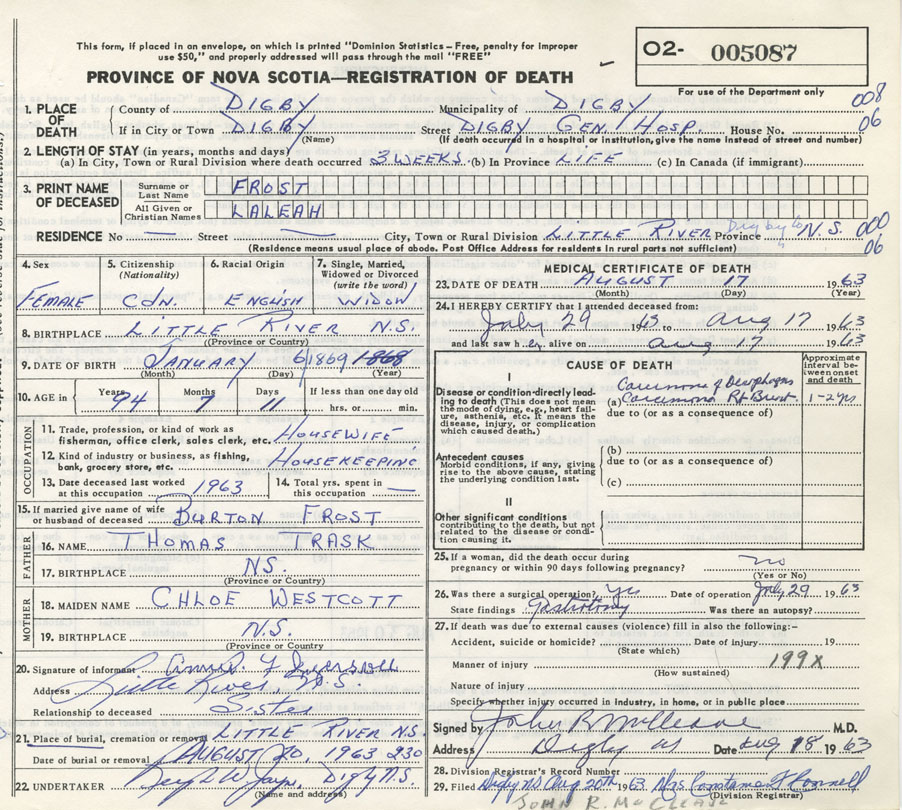 This form, if placed in an envelope, on which is printed "Dominion Statistics – Free, penalty for improper
use $50," and properly addressed will pass through the mail "FREE"
PROVINCE OF NOVA SCOTIA—REGISTRATION OF DEATH
O2- 005087
For use of the Department only
008
06
1. PLACE OF DEATH
County of DIGBY Municipality of DIGBY
If in City or Town DIGBY (Name) Street DIGBY GEN. HOSP. House No.
(If death occurred in a hospital or institution, give the name instead of street and number)
2. LENGTH OF STAY (in years, months and days)
(a) In City, Town or Rural Division where death occurred 3 WEEKS (b) In Province LIFE (c) In Canada (if immigrant)
3. PRINT NAME OF DECEASED
Surname or Last Name FROST
All Given or Christian Names LALEAH
RESIDENCE No — Street — City, Town or Rural Division LITTLE RIVER Digby Co Province N.S.
000
06
(Residence means usual place of abode. Post Office Address for residents in rural parts not sufficient)
4. Sex FEMALE
5. Citizenship (Nationality) CDN.
6. Racial Origin ENGLISH
7. Single, Married, Widowed or Divorced (write the word) WIDOW
8. BIRTHPLACE LITTLE RIVER N.S.
(Province or Country)
9. DATE OF BIRTH JANUARY 6 1869 1868
(Month) (Day) (Year)
10. AGE in Years 94 Months 7 Days 11 If less than one day old hrs. or min.
OCCUPATION
11. Trade, profession, or kind of work as fisherman, office clerk, sales clerk, etc. HOUSEWIFE
12. Kind of industry or business, as fishing, bank, grocery store, etc. HOUSEKEEPING
13. Date deceased last worked at this occupation 1963
14. Total yrs. spent in this occupation —
15. If married give name of wife or husband of deceased BURTON FROST
FATHER
16. NAME THOMAS TRASK
17. BIRTHPLACE N.S.
(Province or Country)
MOTHER
18. MAIDEN NAME CHLOE WESTCOTT
19. BIRTHPLACE N.S.
(Province or Country)
20. Signature of informant
Address Little River, N.S.
Relationship to deceased Sister
21. Place of burial, cremation or removal LITTLE RIVER N.S.
Date of burial or removal AUGUST 20, 1963 230
22. UNDERTAKER Digby N.S.
(Name and address)
MEDICAL CERTIFICATE OF DEATH
23. DATE OF DEATH AUGUST 17 1963
(Month) (Day) (Year)
24. I HEREBY CERTIFY that I attended deceased from:
July 29 1963 to Aug 17 1963
and last saw her alive on Aug 17 1963
CAUSE OF DEATH
Approximate interval between onset and death
I
Disease or condition directly leading to death (This does not mean the mode of dying, e.g., heart failure, asthenia, etc. It means the disease, injury, or complication which caused death.)
Carcinoma of Oesophagus
(a) Carcinoma Rt Breast 1-2 yrs
due to (or as a consequence of)
Antecedent causes
Morbid conditions, if any, giving rise to the above cause, stating the underlying condition last.
(b)
due to (or as a consequence of)
(c)
II
Other significant conditions
contributing to the death, but not related to the disease or condition causing it.
25. If a woman, did the death occur during pregnancy or within 90 days following pregnancy? no
(Yes or No)
26. Was there a surgical operation? Yes Date of operation July 29 1963
State findings Was there an autopsy?
27. If death was due to external causes (violence) fill in also the following:-
Accident, suicide or homicide? Date of injury 19
(State which)
Manner of injury 199X
(How sustained)
Nature of injury
Specify whether injury occurred in industry, in home, or in public place
Signed by M.D.
Address Digby NS Date Aug 18 1963
28. Division Registrar's Record Number
29. Filed Digby NS Aug 20th 1963
(Division Registrar)
JOHN R. McCLEAVE